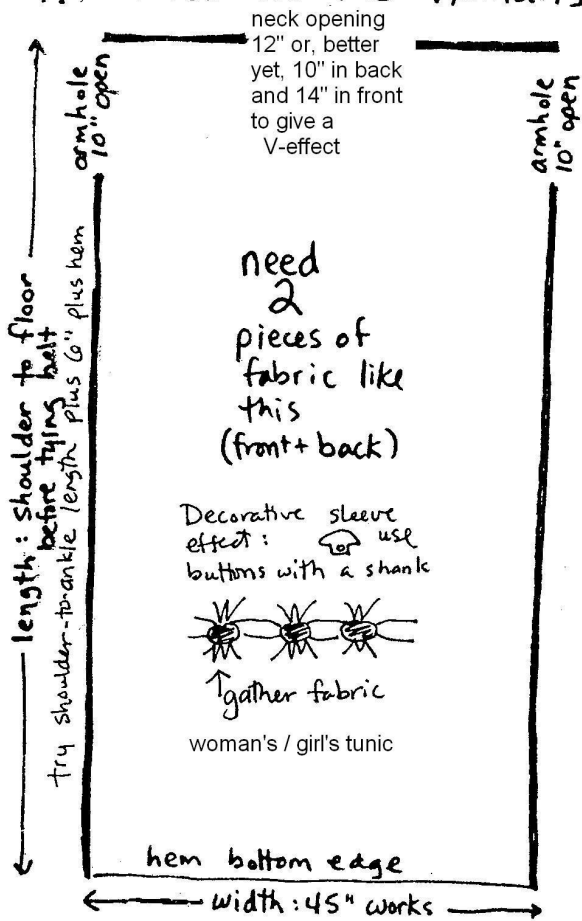 neck opening
12" or, better
yet, 10" in back
and 14" in front
to give a
V-effect
armhole
10" open
armhole
10" open
length: shoulder to floor
before tying belt
try shoulder-to-ankle length plus 6" plus hem
need
2
pieces of
fabric like
this
(front + back)
Decorative sleeve
effect: use
buttons with a shank
gather fabric
woman's / girl's tunic
hem bottom edge
width: 45" works